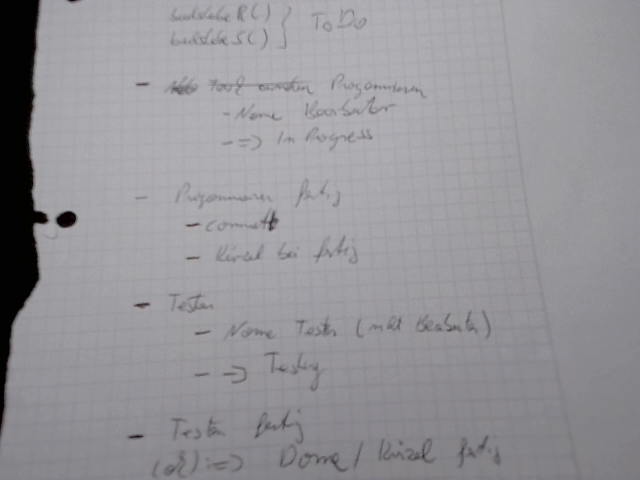 buchstabeR() } ToDo
buchstabeS()
- Programmieren
- Name Bearbeiter
- => In Progress
- Programmieren fertig
- commit
- Kürzel bei fertig
- Testen
- Name Tester (nicht Bearbeiter)
- => Testing
- Testen fertig
(ok) : => Done / Kürzel fertig